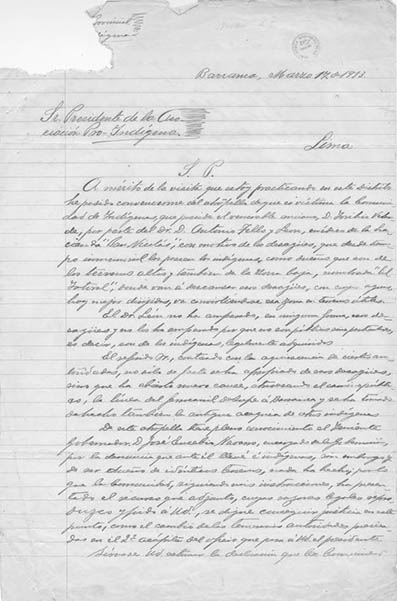 Provincial
Indígena
Barranca, Marzo 17 de 1913.
Sr. Presidente de la Aso-
ciación Pro-Indígena.
Lima
S. P.
A mérito de la visita que estoy practicando en este Distrito
he podido convencerme del atropello de que es víctima la Comuni-
dad de Indígenas, que preside el venerable anciano, D. Toribio
por parte del Dr. D. Antonio Feliz y León, médico de la ha-
cienda "San Nicolás", con motivo de los desagües, que desde tiem-
po inmemorial los poseen los indígenas, como dueños que son de
los terrenos altos y también de la tierra baja, nombrada "El
Totoral", donde van á descansar esos desagües, con cuya agua,
hoy mejor dirigida, va convirtiéndose esa zona en terrenos útiles.
El Dr. León no ha amparado, en ninguna forma, esos de-
sagües y no los ha amparado por que no son
es decir, son de los indígenas, legalmente adquiridos
El referido Dr., contando con la aquiescencia de ciertas au-
toridades, no sólo de facto se ha apropiado de esos desagües,
sino que ha abierto nuevo cauce, atravesando el camino públi-
co, la línea del ferrocarril de Supe á Barranca y se ha tomado
de hecho también la antigua acequia de otros indígenas.
De este atropello tiene pleno conocimiento el Teniente
Gobernador, D. José Eusebio
por la denuncia que ante él llevó el indígena, sin embargo
de ser dueño de idénticos terrenos, nada ha hecho; por lo
que la Comunidad, siguiendo mis instrucciones, ha presen-
tado el recurso que adjunto, cuyas razones legales repro-
duzco y pido á Ud., se digne conseguir justicia en este
punto, como el cambio de las tenencias autoridades,
das en el 2º acápite del oficio que pasa á Ud. el presidente
Sírvase Ud. activar la declaración que la Comunidad